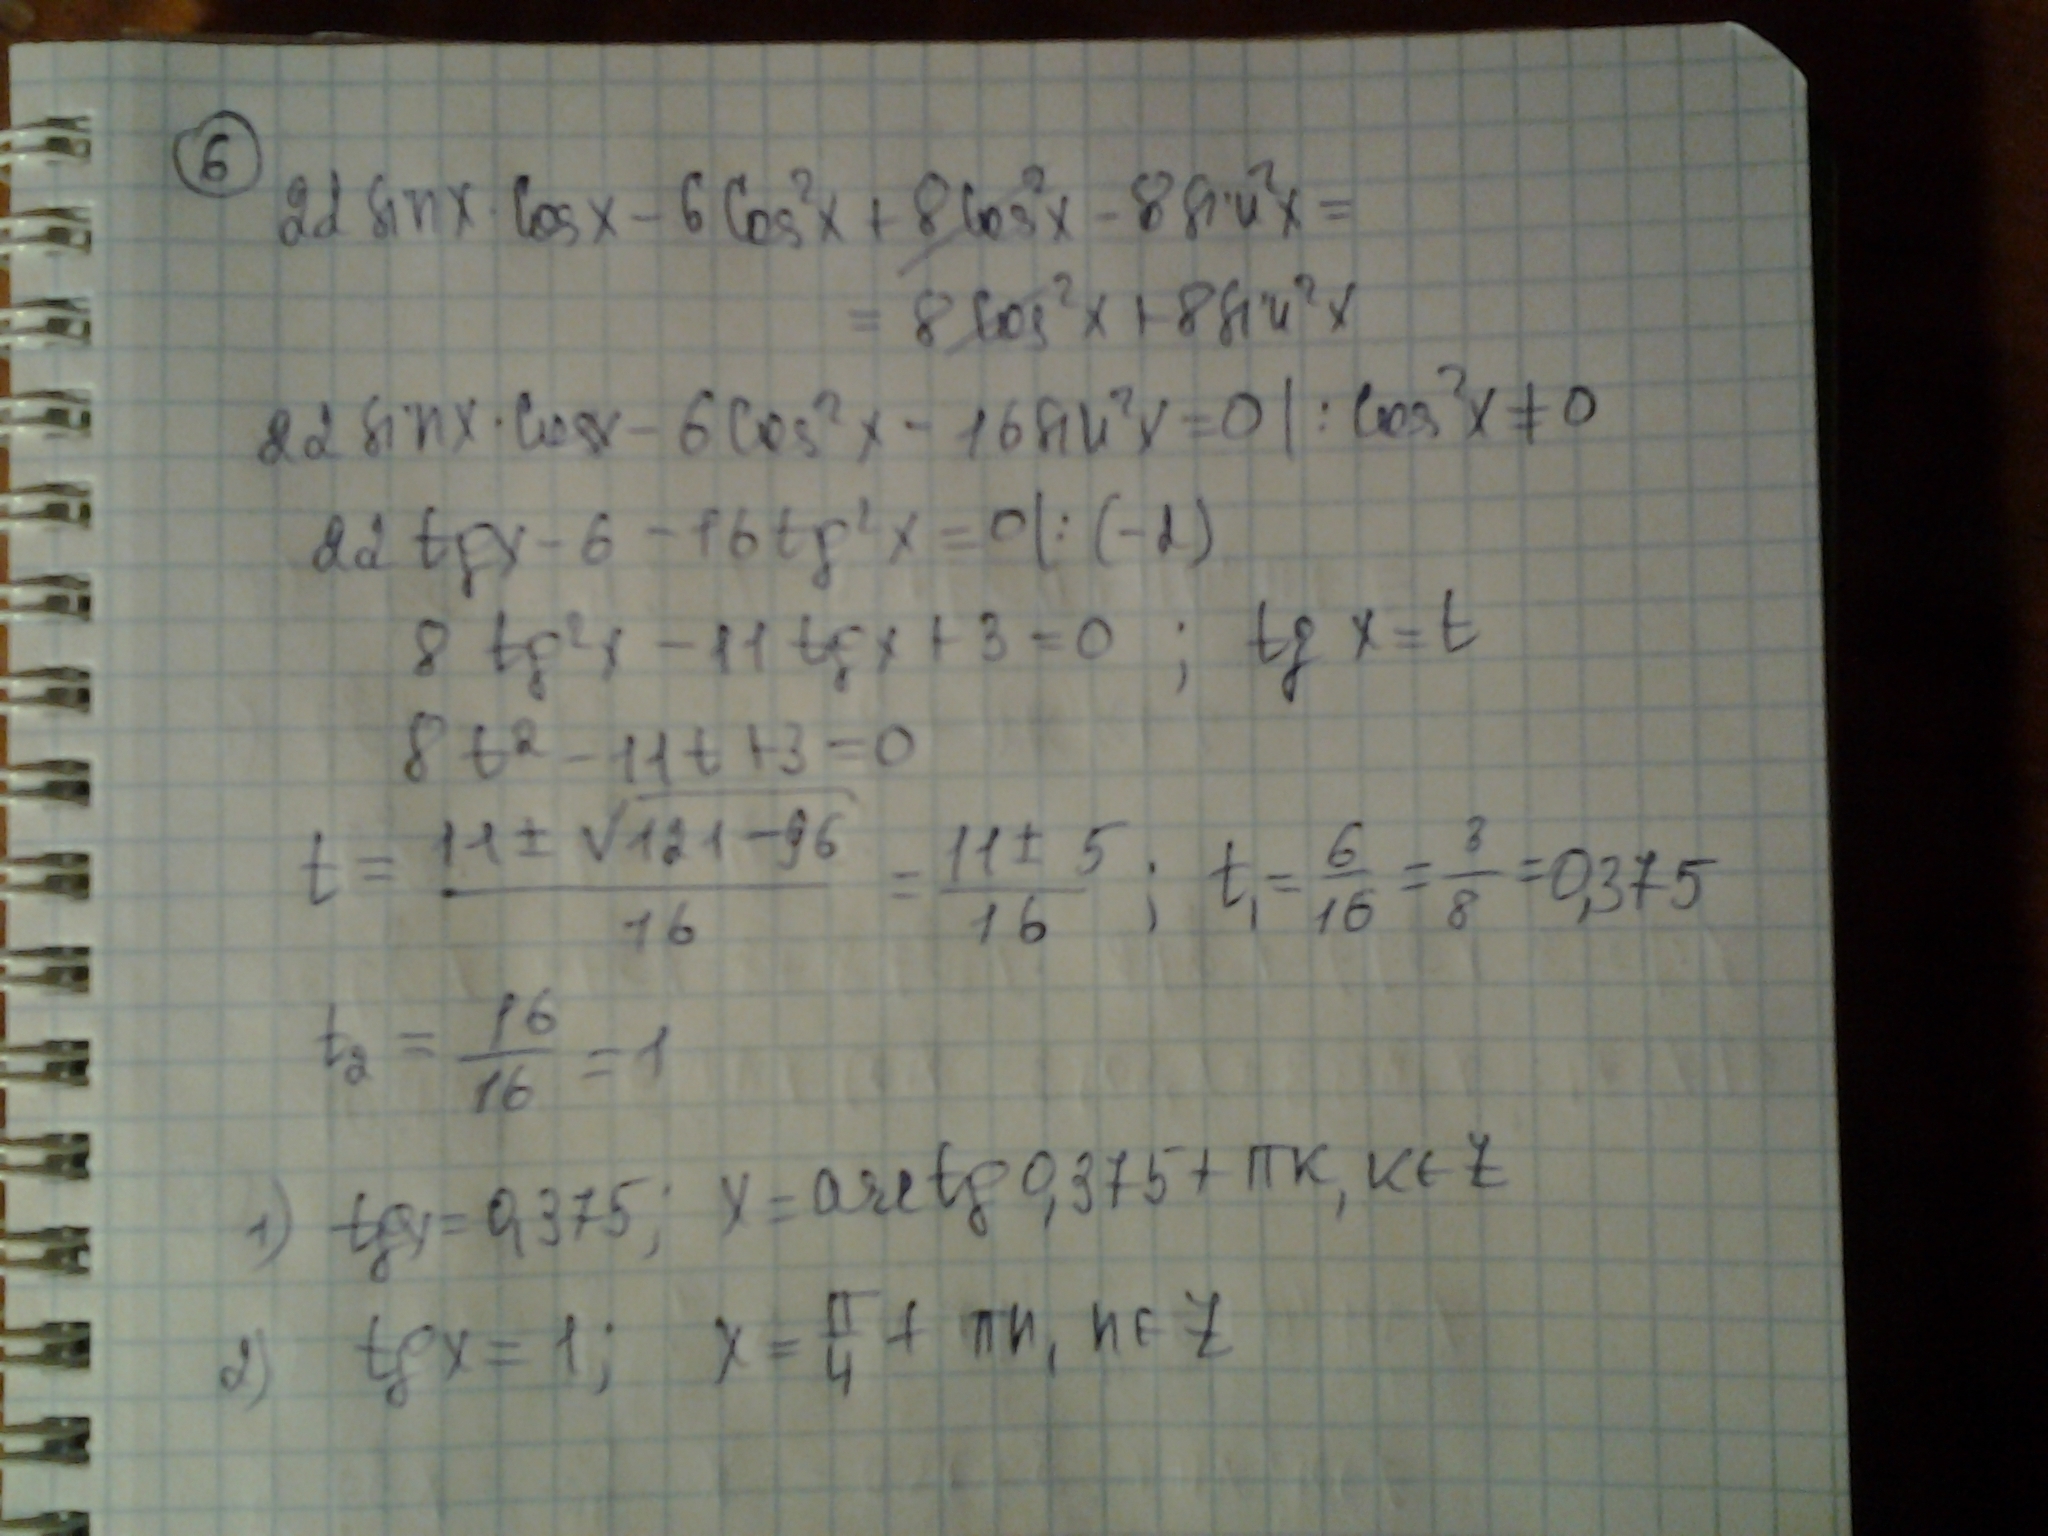 6
22 sin x · cos x - 6 cos² x + 8 cos² x - 8 sin² x =
= 8 cos² x + 8 sin² x
22 sin x · cos x - 6 cos² x - 16 sin² x = 0 | : cos² x ≠ 0
22 tg x - 6 - 16 tg² x = 0 | : (-2)
8 tg² x - 11 tg x + 3 = 0 ; tg x = t
8 t² - 11 t + 3 = 0
t = (11 ± √(121 - 96))/16 = (11 ± 5)/16 ; t₁ = 6/16 = 3/8 = 0,375
t₂ = 16/16 = 1
1) tg x = 0,375; x = arctg 0,375 + πк, к ∈ Z
2) tg x = 1; x = π/4 + πn, n ∈ Z